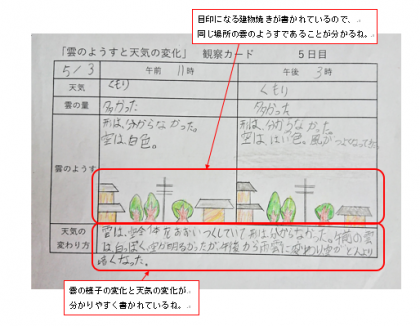 目印になる建物焼きが書かれているので、
同じ場所の雲のようすであることが分かるね。
「雲のようすと天気の変化」 観察カード 5日目
5/3 午前 11時 午後 3時
天気 くもり くもり
雲の量 多かった 多かった
雲のようす
形は、分からなかった。 形は、分からなかった。
空は白色。 空は、はい色。風が
天気の
変わり方
雲は、全体をおおいつくしていて形は分からなかった。午前の雲
は白っぽく、空が明るかったが、午後から雨雲に変わり空がどんより
暗くなった。
雲の様子の変化と天気の変化が
分かりやすく書かれているね。